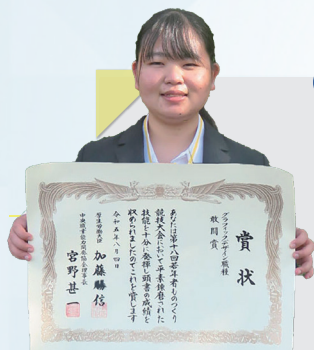 賞状
グラフィックデザイン職種
敢闘賞
あなたは第十八回若年者ものづくり
競技大会において平素錬磨された
技能を十分に発揮し頭書の成績を
収められましたのでこれを賞します
令和五年八月四日
厚生労働大臣 加藤勝信
中央職業能力開発協会理事長 宮野甚一